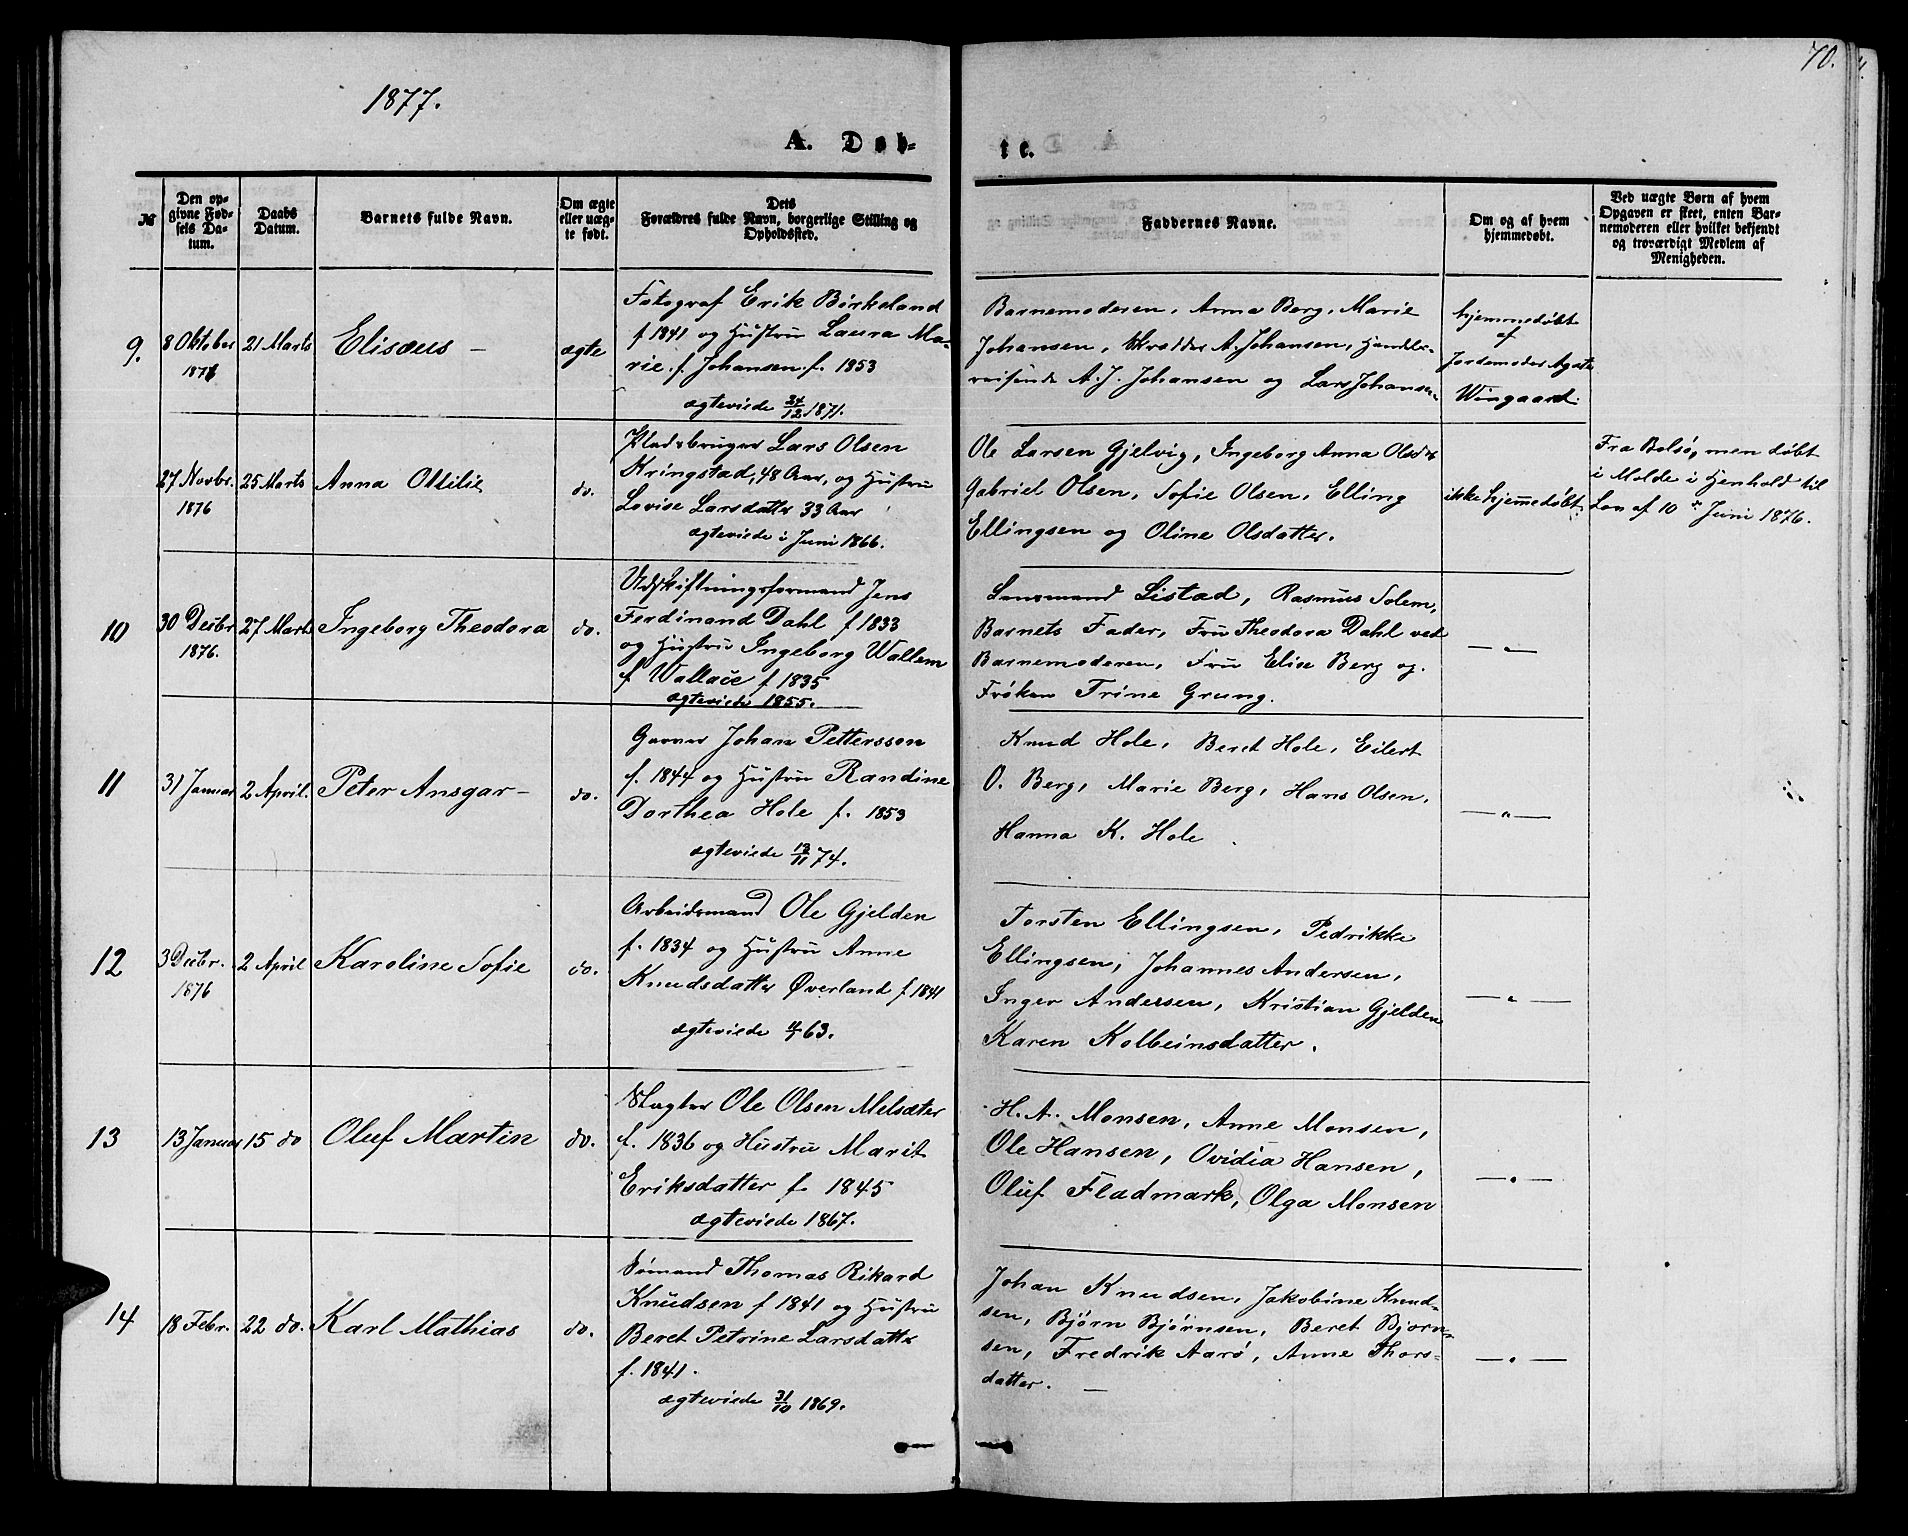 1877.
70.
A. Døb-
te.
№
Den op-
givne Fød-
sels Da-
tum.
Daabs
Datum.
Barnets fulde Navn.
Om ægte
eller uæg-
te født.
Dets
Forældres fulde Navn, borgerlige Stilling og
Opholdssted.
Faddernes Navne.
Om og af hvem
hjemmedøbt.
Ved uægte Børn af hvem
Opgaven er skeet, enten Bar-
nemoderen eller hvilket bekjendt
og troværdigt Medlem af
Menigheden.
9.
8 Oktober
21 Marts
Elisæus –
ægte
Fotograf Erik Birkeland
f 1841 og Hustru Laura Ma-
rie f. Johansen f. 1853
ægteviede 24/12 1871.
Barnemoderen, Anna Berg, Marie
Johansen, Skrædder A. Johansen, Handels-
reisende A. J. Johansen og Lars Johansen
hjemmedøbt
af
Jordemoder Agate
Wingaard.
27 Novbr.
1876
25 Marts
Anna Ottilie
do.
Pladsbruger Lars Olsen
Kringstad, 48 Aar, og Hustru
Lovise Larsdatter 33 Aar
ægteviede i Juni 1866.
Ole Larsen Gjelvig, Ingeborg Anna Olsdtr
Gabriel Olsen, Sofie Olsen, Elling
Ellingsen og Oline Olsdatter.
ikke hjemmedøbt
Fra Bolsø, men døbt
i Molde i Henhold til
Lov af 10 Juni 1876.
10
30 Decbr
1876.
27 Marts
Ingeborg Theodora
do.
Udskiftningsformand Jens
Ferdinand Dahl f 1833
og Hustru Ingeborg Wallem
f Wallace f 1835
ægteviede 1855.
Lensmand Listad, Rasmus Solem,
Barnets Fader, Fru Theodora Dahl ved
Barnemoderen, Fru Elise Berg og
Frøken Trine Grung.
— „ —
11
31 Januar
2 April.
Peter Ansgar –
do.
Garver Johan Pettersson
f. 1844 og Hustru Randine
Dorthea Hole f. 1853
ægteviede 13/11 74.
Knud Hole, Beret Hole, Eilert
O. Berg, Marie Berg, Hans Olsen,
Hanna K. Hole
— „ —
12
3 Decbr.
1876
2 April
Karoline Sofie
do.
Arbeidsmand Ole Gjelden
f. 1834 og Hustru Anne
Knudsdatter Øverland f 1841
ægteviede 4/7 63.
Torsten Ellingsen, Pedrikke
Ellingsen, Johannes Andersen,
Inger Andersen, Kristian Gjelden
Karen Kolbeinsdatter.
— „ —
13
13 Januar
15 do
Oluf Martin
do.
Slagter Ole Olsen Melsæter
f. 1836 og Hustru Marit
Eriksdatter f 1845
ægteviede 1867.
H. A. Monsen, Anne Monsen,
Ole Hansen, Ovidia Hansen,
Oluf Fladmark, Olga Monsen
— „ —
14
18 Febr.
22 do.
Karl Mathias
do.
Sømand Thomas Rikard
Knudsen f 1841 og Hustru
Beret Petrine Larsdatter
f. 1841.
ægteviede 31/10 1869.
Johan Knudsen, Jakobine Knud-
sen, Bjørn Bjørnsen, Beret Bjørn-
sen, Fredrik Aarø, Anne Thors-
datter. —
— „ —